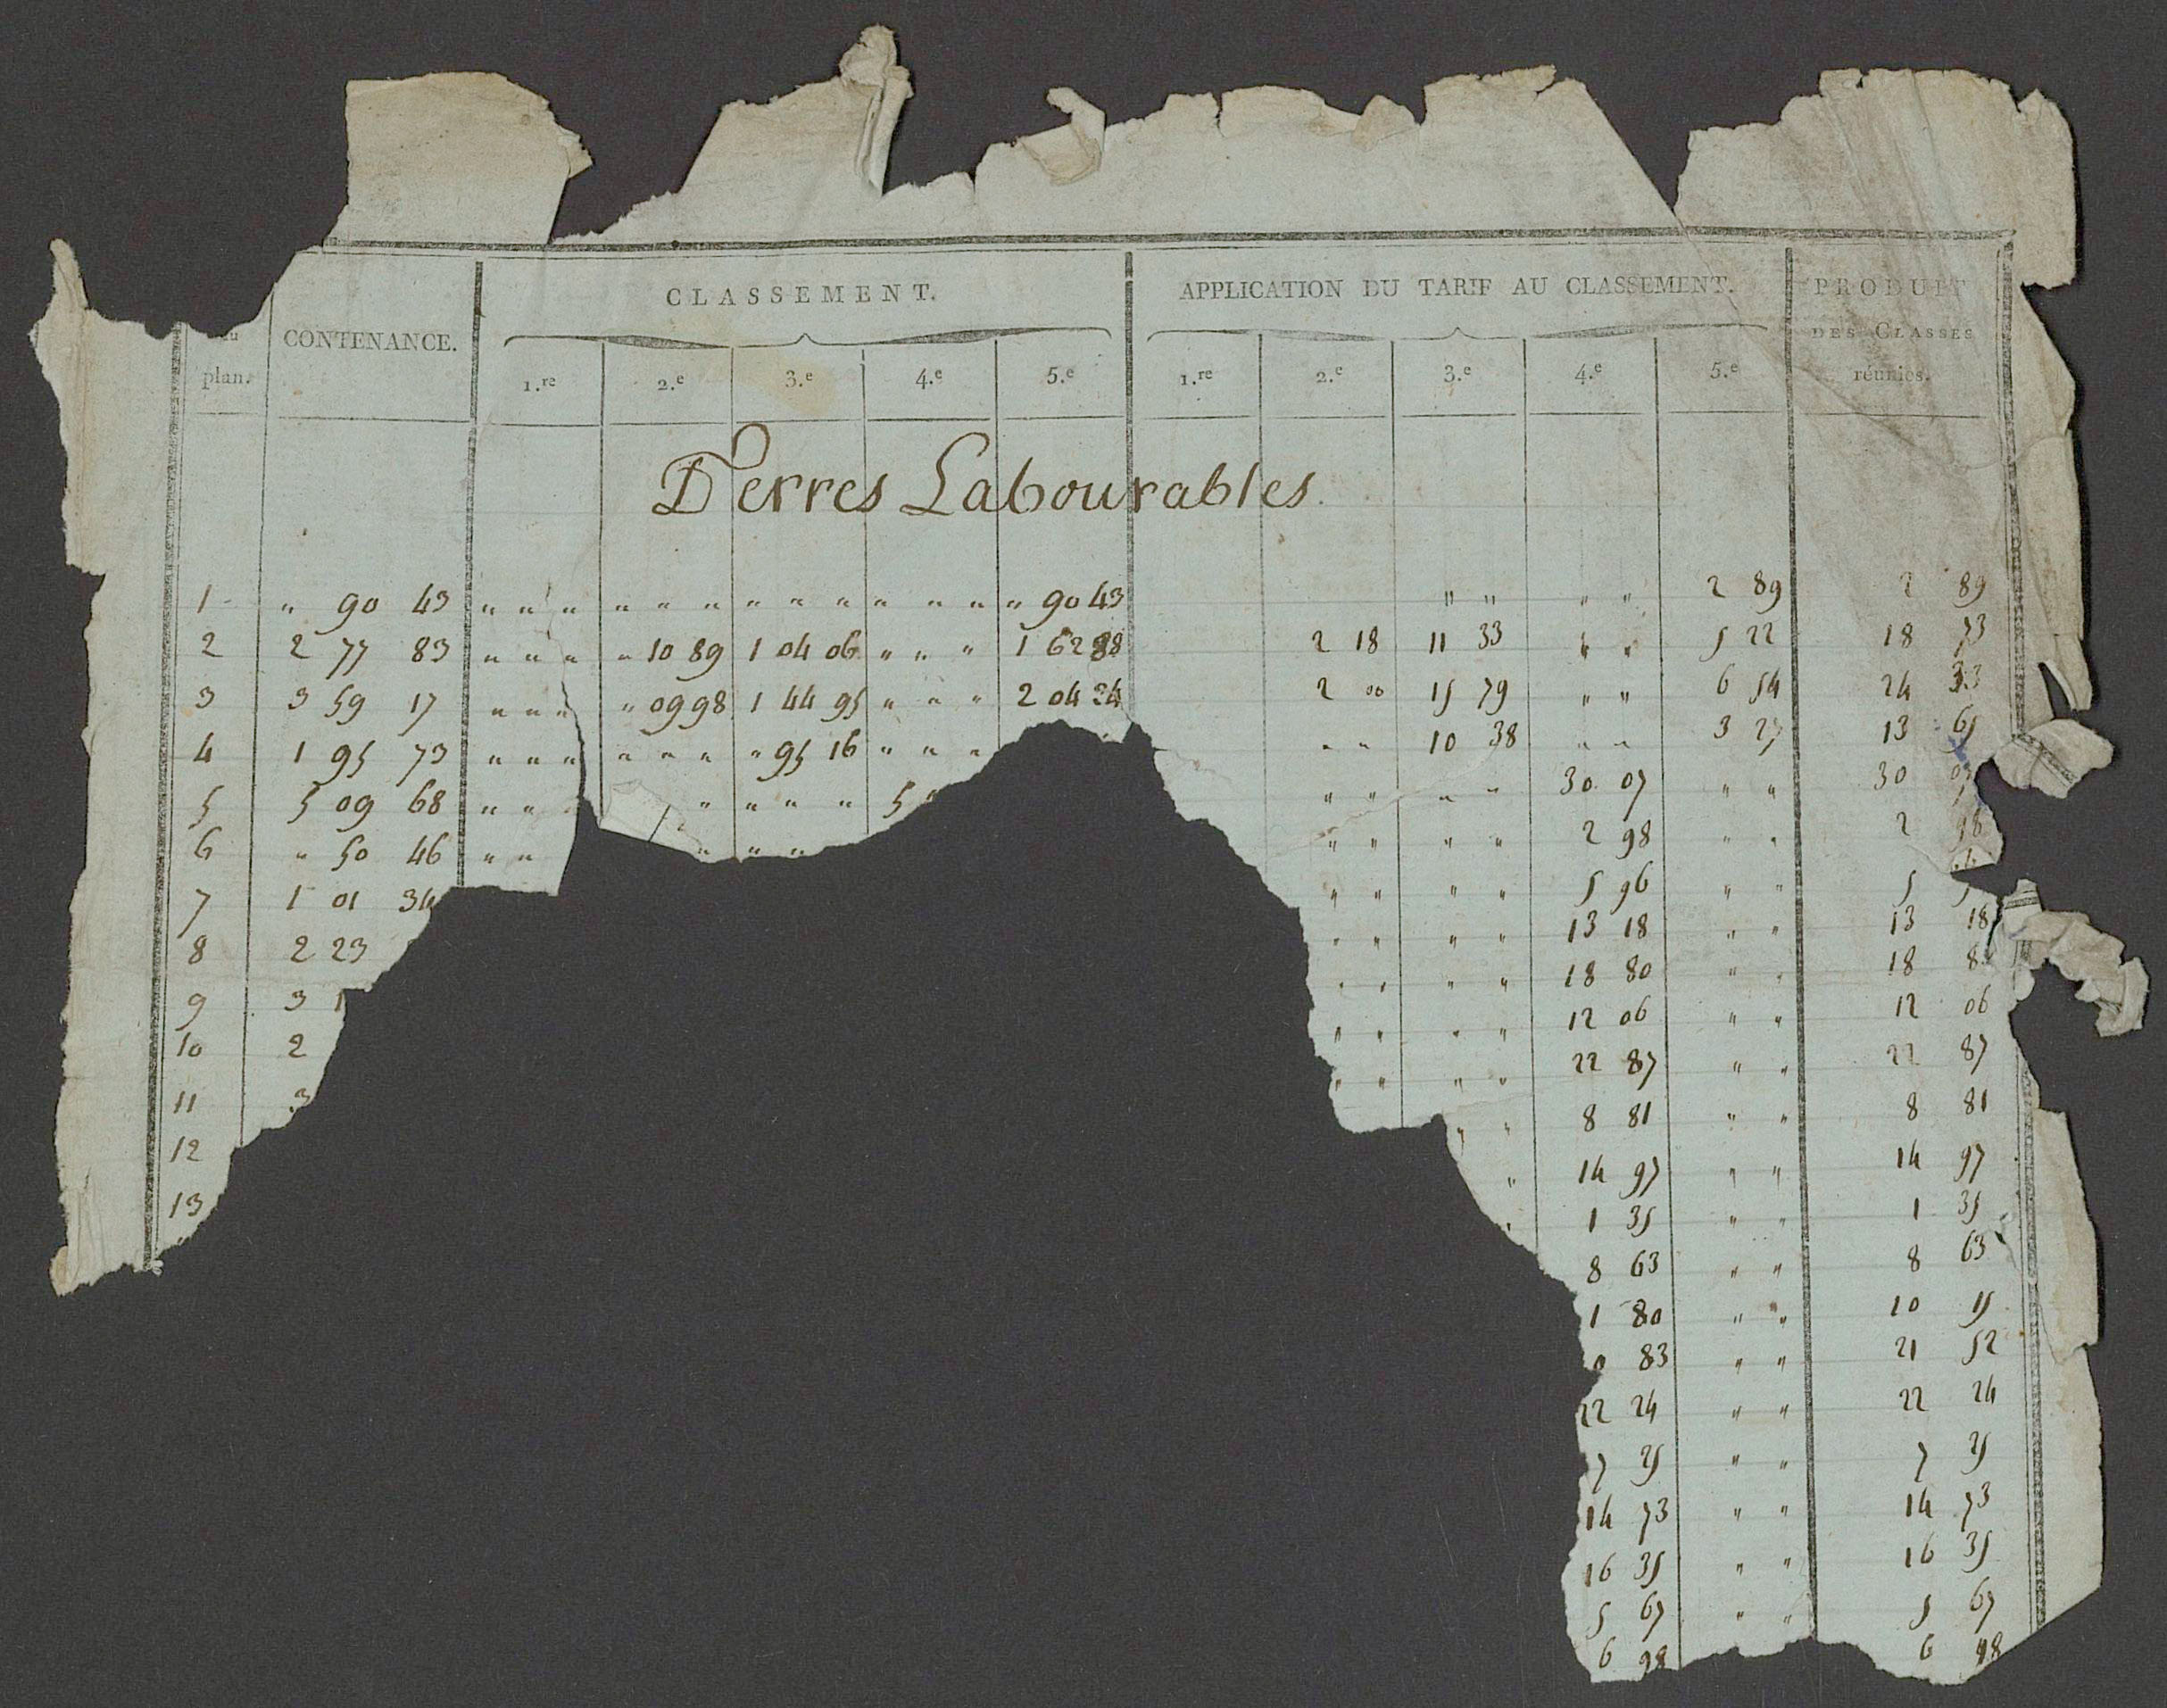 CLASSEMENT. APPLICATION DU TARIF AU CLASSEMENT. PRODUIT
CONTENANCE. DES CLASSES
plan. 1.re 2.e 3.e 4.e 5.e 1.re 2.e 3.e 4.e 5.e réunies.
Terres Labourables.
1 " 90 43 " " " " " " " " " " " " " 90 43 " " " " 2 89 2 89
2 2 77 83 " " " " 10 89 1 04 06 " " " 1 62 88 2 18 11 33 " " 5 22 18 73
3 3 59 17 " " " " 09 98 1 44 95 " " " 2 04 24 2 00 15 79 " " 6 54 24 33
4 1 95 73 " " " " " " " 95 16 " " " " " 10 38 " " 3 27 13 65
5 5 09 68 " " " " " " 5 " " " " " 30 07 " " 30 07
6 " 50 46 " " " " " " " " " 2 98 " " 2 98
7 1 01 34 " " " " 5 96 " " 5
8 2 23 " " " " 13 18 " " 13 18
9 3 1 " " " " 18 80 " " 18 8
10 2 " " " " 12 06 " " 12 06
11 3 " " " " 22 87 " " 22 87
12 " " 8 81 " " 8 81
13 " 14 97 " " 14 97
1 35 " " 1 35
8 63 " " 8 63
1 80 " " 10 15
0 83 " " 21 52
22 24 " " 22 24
7 25 " " 7 25
14 73 " " 14 73
16 35 " " 16 35
5 67 " " 5 67
6 98 6 98